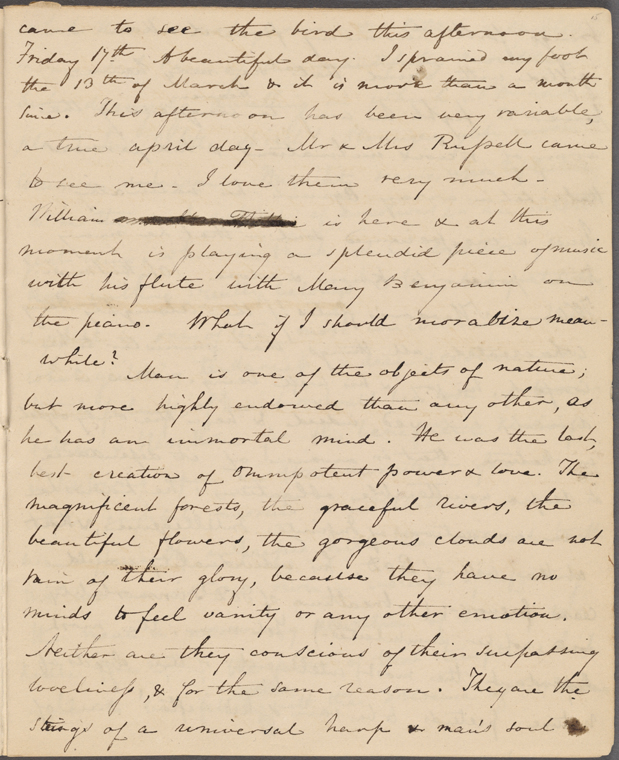 came to see the bird this afternoon.
Friday 17th A beautiful day. I sprained my foot
the 13th of March & it is more than a month
since. This afternoon has been very variable,
a true april day - Mr & Mrs Russell came
to see me - I love them very much -
William is here & at this
moment is playing a splendid piece of music
with his flute with Mary Benjamin on
the piano. What if I should moralize mean-
while?
Man is one of the objects of nature;
but more highly endowed than any other, as
he has an immortal mind. He was the last,
best creation of Omnipotent power & love. The
magnificent forests, the graceful rivers, the
beautiful flowers, the gorgeous clouds are not
vain of their glory, because they have no
minds to feel vanity or any other emotion.
Neither are they conscious of their surpassing
loveliness, & for the same reason. They are the
strings of a universal harp & man's soul